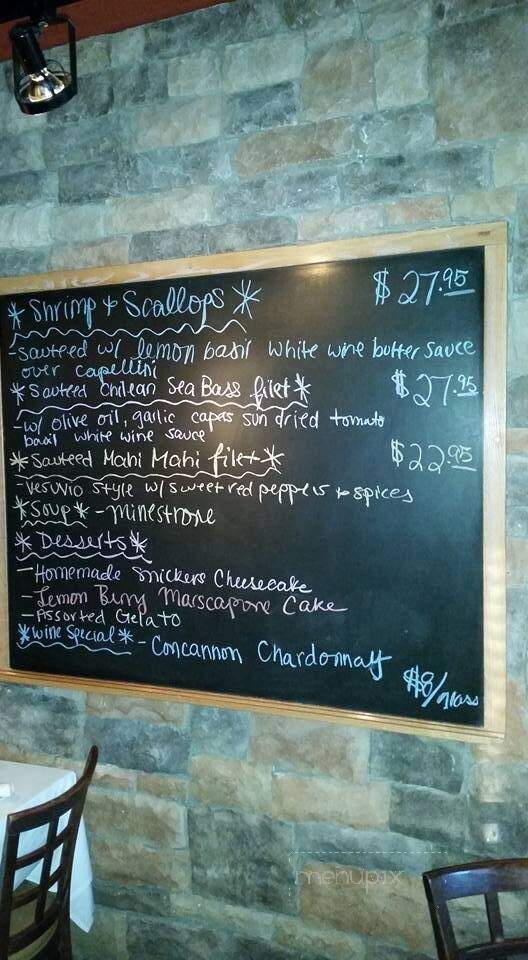 *Shrimp & Scallops* $27.95
-Sauteed w/ lemon basil white wine butter sauce
over capellini
*Sauteed Chilean Sea Bass filet* $27.95
-w/ olive oil, garlic capas sun dried tomato
basil white wine sauce
*Sauteed Mahi Mahi filet* $22.95
-Vesuvio style w/ sweet red peppers & spices
*Soup* - Minestrone
*Desserts*
-Homemade Snickers Cheesecake
-Lemon Berry Marscapone Cake
-Assorted Gelato
*Wine Special* - Concannon Chardonnay
$8/glass
menupix